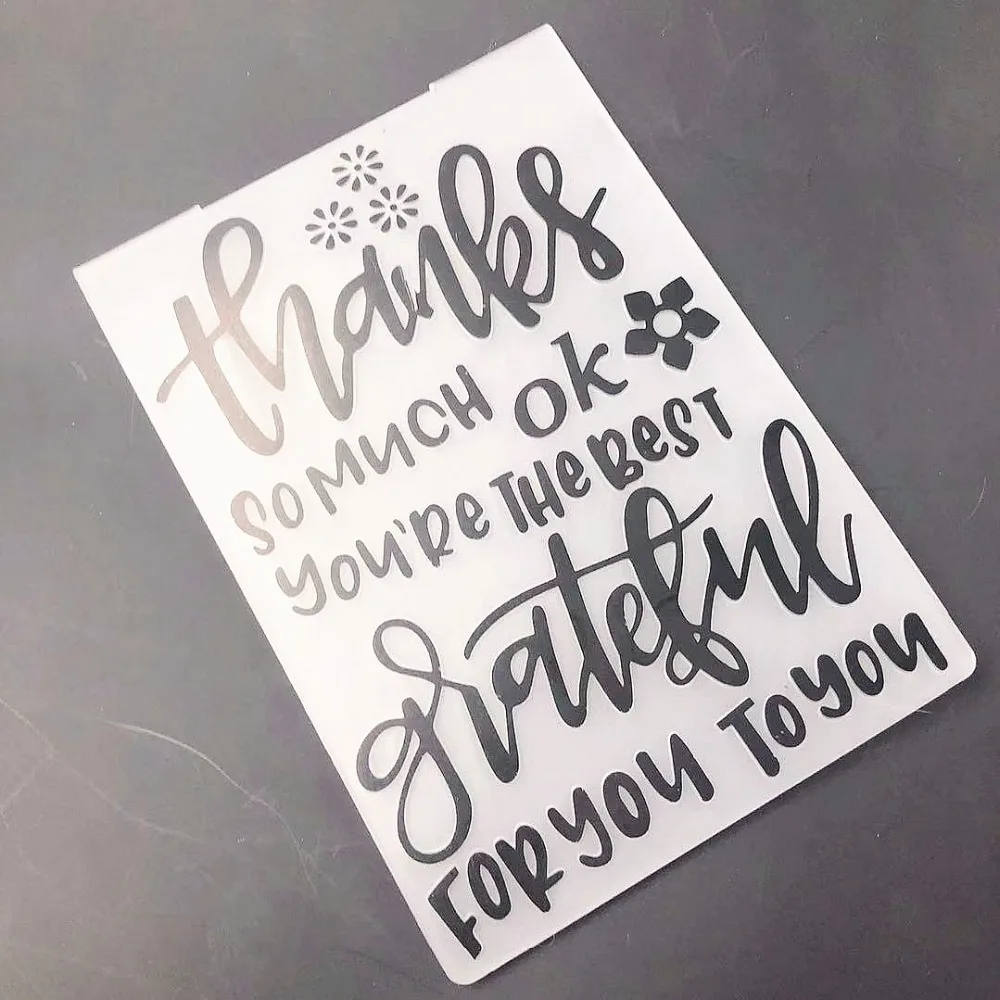 thanks
SO MUCH ok
YOU'RE THE BEST
grateful
FOR YOU TO YOU